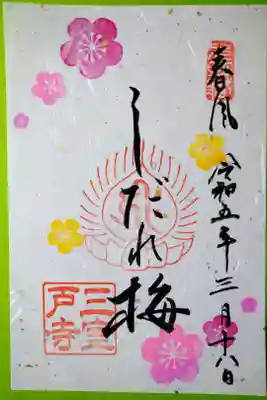 春風
令和五年三月十八日
しだれ梅
三室
戸寺